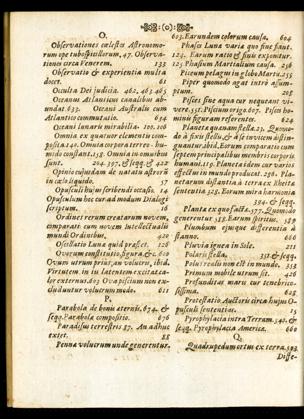 :(o):
O.
Observationes cælestes Astronomo-
rum ope tubospitillorum, 47. Observa-
tiones circa Venerem. 133
Observatio & experientia multa
docet. 61
Occulta Dei judicia. 462. 463. 465
Oceanus Atlanticus canalibus ab-
undat 633. Oceani Australis cum
Atlantico commutatio. 634
Oceani lunaris mirabilia. 100. 106
Omnia ex quatuor elementis com-
posita 140. Omnia corpora terreo-hu-
mido constant. 138. Omnia in omnibus
sunt. 204. 397. & seqq. & 422
Opinio cujusdam de natatu astrorũ
in cælo liquido. 57
Opusculi hujus scribendi occasio. 14
Opusculum hoc cur ad modum Dialogi
scriptum. 18
Ordines rerum creatarum novem,
comparate cum novem Intellectualis
mundi Ordinibus.
Oscillatio Luna quid præstet. 128
Ovorum constitutio, figura, &c. 610
Ovum utrum prius, an volucris, ibid.
Virtutem in iis latentem excitat ca-
lor externus. 603 Ova piscium non ex-
cluduntur volutrum modo. 611
P.
Parabola de bonis æternis. 674. &
seqq. Parabolæ compositio. 676
Paradisus terrestris 87. An adhuc
extet. 88
Penna volucrum unde generentur.
603. Earundem colorum causa. 604
Phases Luna varia quo fine fiant.
124. Earum ratio & usus exponitur.
125 Phasium Martialium causa. 236
Picum pelagum in globo Martis. 255
Piper quomodo agat intrò assum-
ptum. 205
Pisces sine aqua cur nequeant vi-
vere. 557. Piscium origo. 607. Pisces ho-
minis figuram referentes. 624
Planeta quænam stella. 23. Quomo-
do à fixis stellis, & à se invicem distin-
guantur. ibid. Eorum comparatio cum
septem principalibus membris corporis
humani. 159. Planeta idem cur varios
effectus in mundo producat. 296. Pla-
netarum distantia à terra ex Rheita
sententia 328. Eorum mira harmonia
394. & seqq.
Planta ex quo facta. 577. Quomodo
generentur. 588. Earum spiritus. 589
Plumbum ejusque differentia à
stanno. 666
Pluvia ignea in Sole. 211
Polaris stella. 352 & seqq.
Poli reales non est in mundo. 353
Primum mobile utrum sit. 426
Profunditas maris cur tenebrico-
sissima. 628
Protestatio Auctoris circa hujus O-
pusculi sententias. 15
Pyrophylacia intra Terram. 540. &
seqq. Pyrophylacia Americæ. 660
Q.
Quadrupedum ortus ex terra. 583
Diffe-